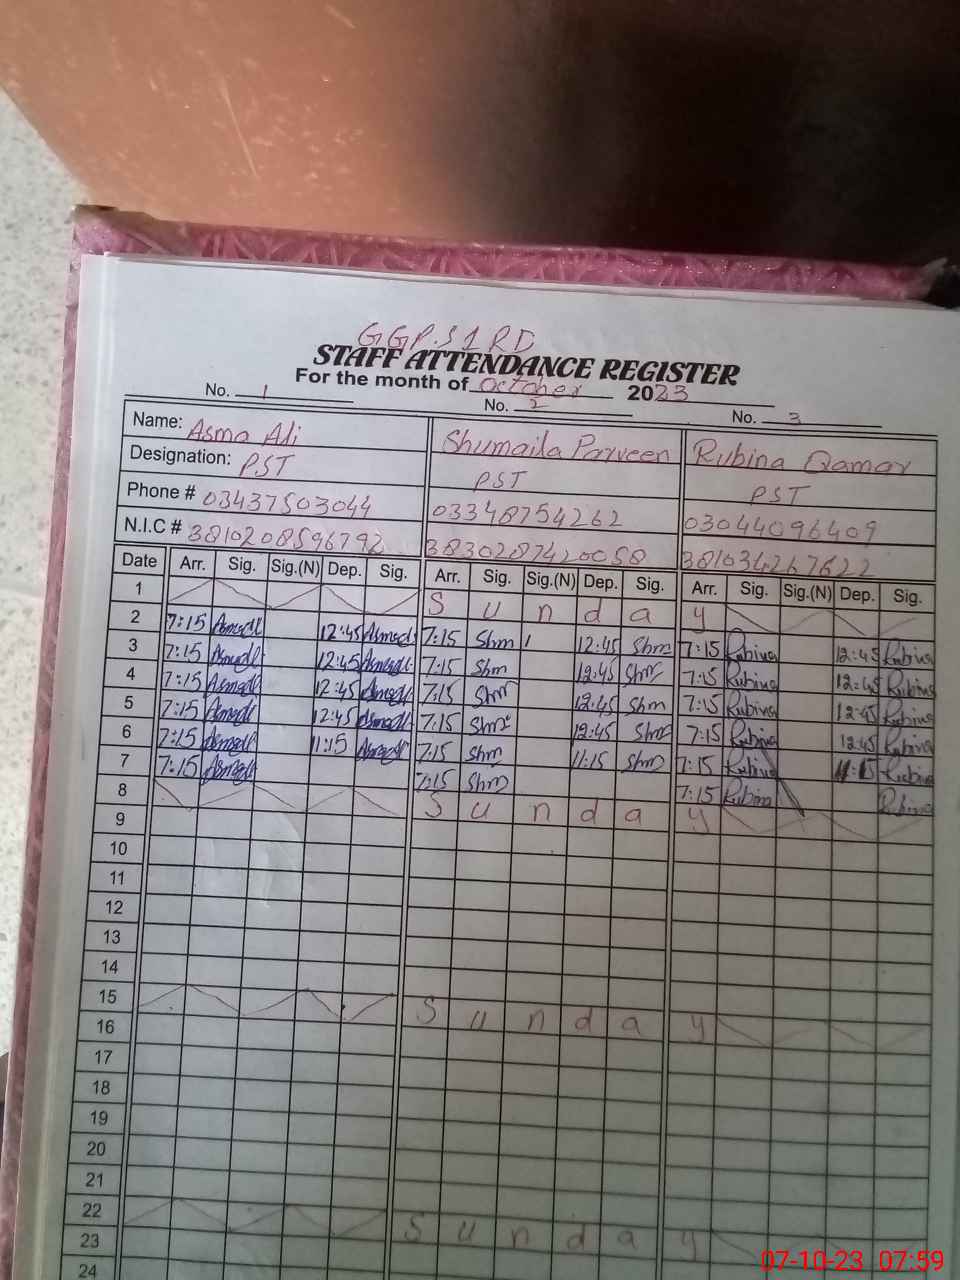 GGP.S 1 RD
STAFF ATTENDANCE REGISTER
For the month of October 2023
No. 1 No. 2 No. 3
Name: Asma Ali Shumaila Parveen Rubina Qamar
Designation: PST PST PST
Phone # 03437503044 03348754262 03044096409
N.I.C # 3810208596792 3830287420058 381034267622
Date Arr. Sig. Sig.(N) Dep. Sig. Arr. Sig. Sig.(N) Dep. Sig. Arr. Sig. Sig.(N) Dep. Sig.
1 S u n d a y
2 7:15 12:45 7:15 Shm 12:45 Shm 7:15 Rubina 12:45 Rubina
3 7:15 12:45 7:15 Shm 12:45 Shm 7:15 Rubina 12:45 Rubina
4 7:15 12:45 7:15 Shm 12:45 Shm 7:15 Rubina 12:45 Rubina
5 7:15 12:45 7:15 Shm 12:45 Shm 7:15 Rubina 12:45 Rubina
6 7:15 11:15 7:15 Shm 11:15 Shm 7:15 Rubina 11:15 Rubina
7 7:15 7:15 Shm 7:15 Rubina Rubina
8 S u n d a y
9
10
11
12
13
14
15 S u n d a y
16
17
18
19
20
21
22 S u n d a y
23
24
07-10-23 07:59